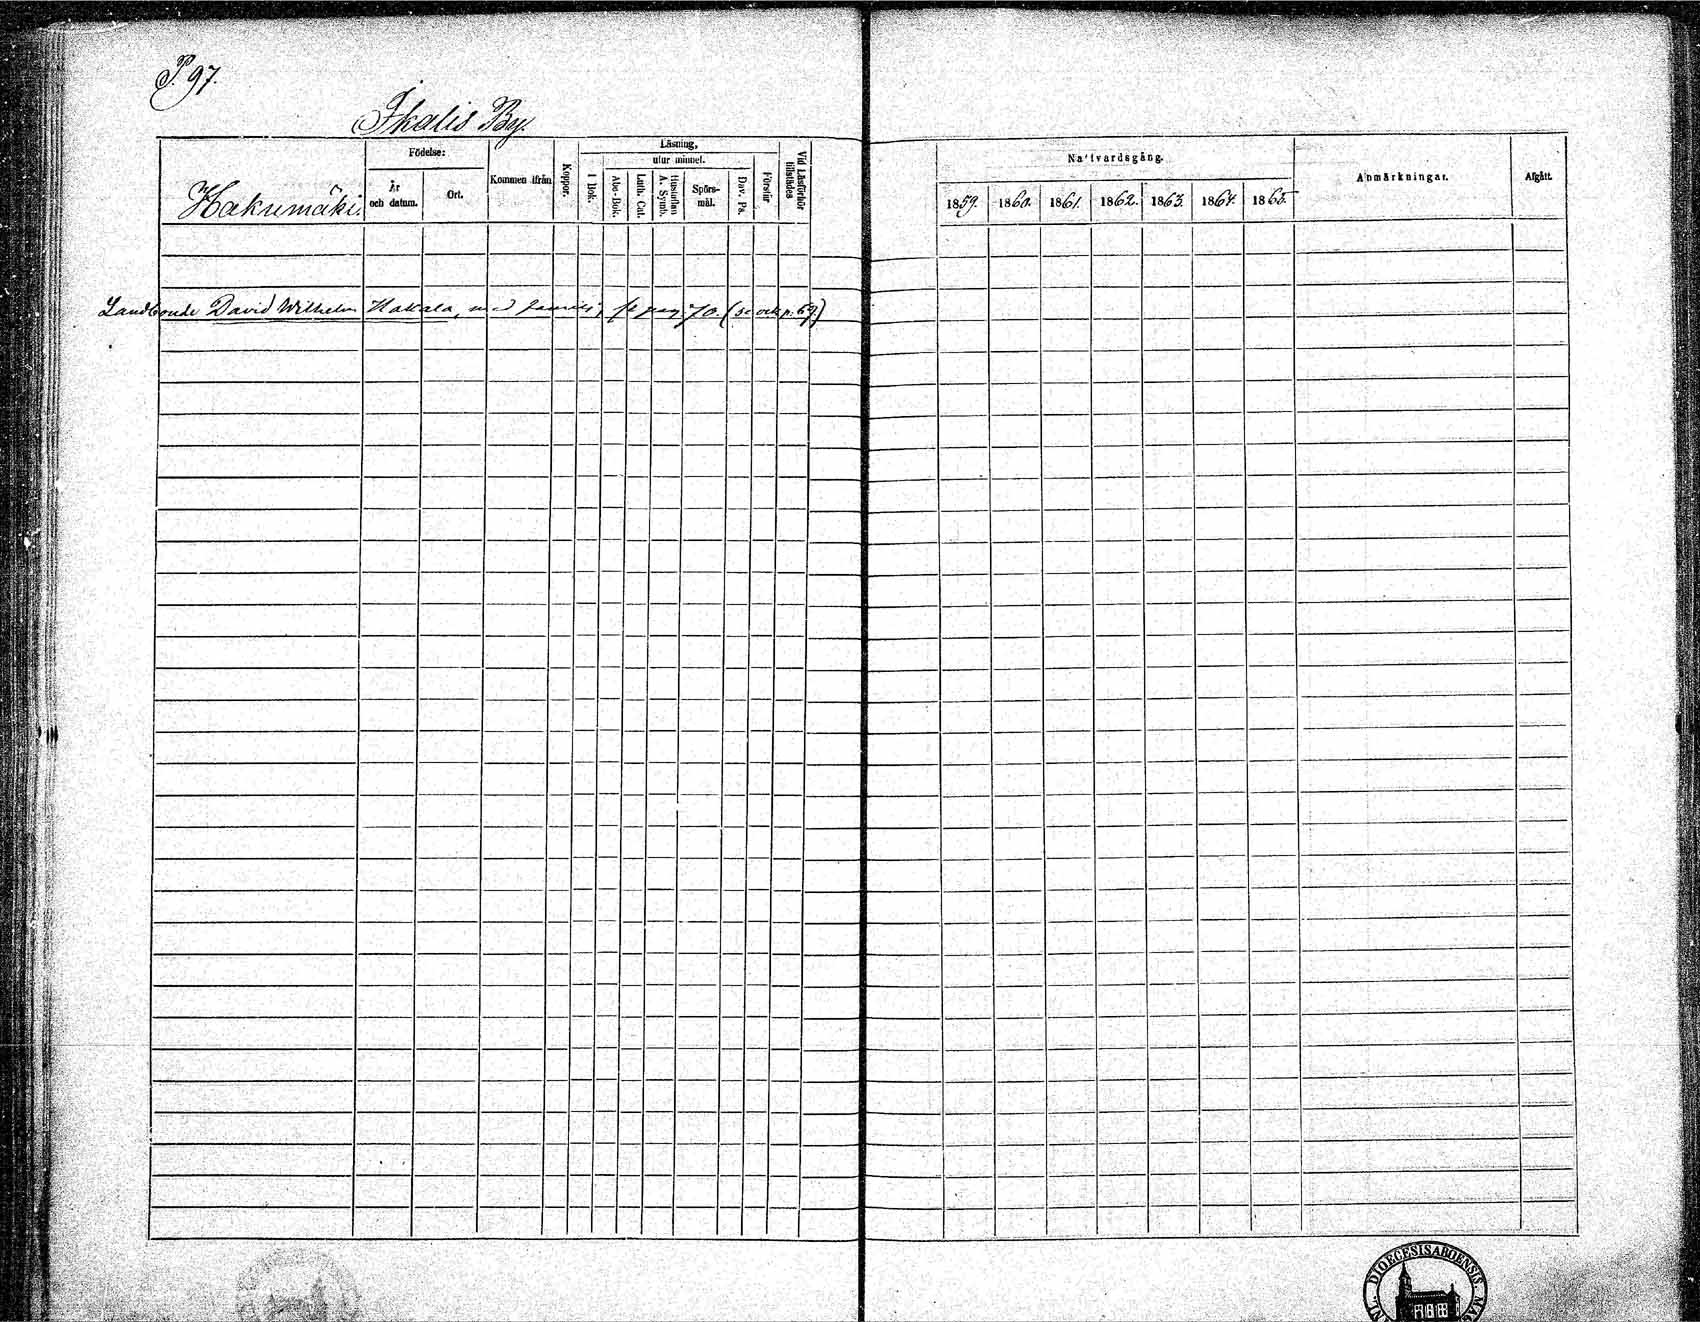 P. 97.
Ikalis By.
Hakumäki.
Födelse:
År och datum.
Ort.
Kommen ifrån
Koppor.
Läsning,
utur minnet.
I Bok.
Abc-Bok.
Luth. Cat.
Hustaflan A. Symb.
Spörs-mål.
Dav. Ps.
Förstår
Vid Läsförhör tillstädes
Landbonde David Wilhelm Hakala, med familj, se pag 70. (se ock p. 69.)
Nattvardsgång.
1859. 1860. 1861. 1862. 1863. 1864. 1865.
Anmärkningar.
Afgått.
DIOECESIS ABOENSIS